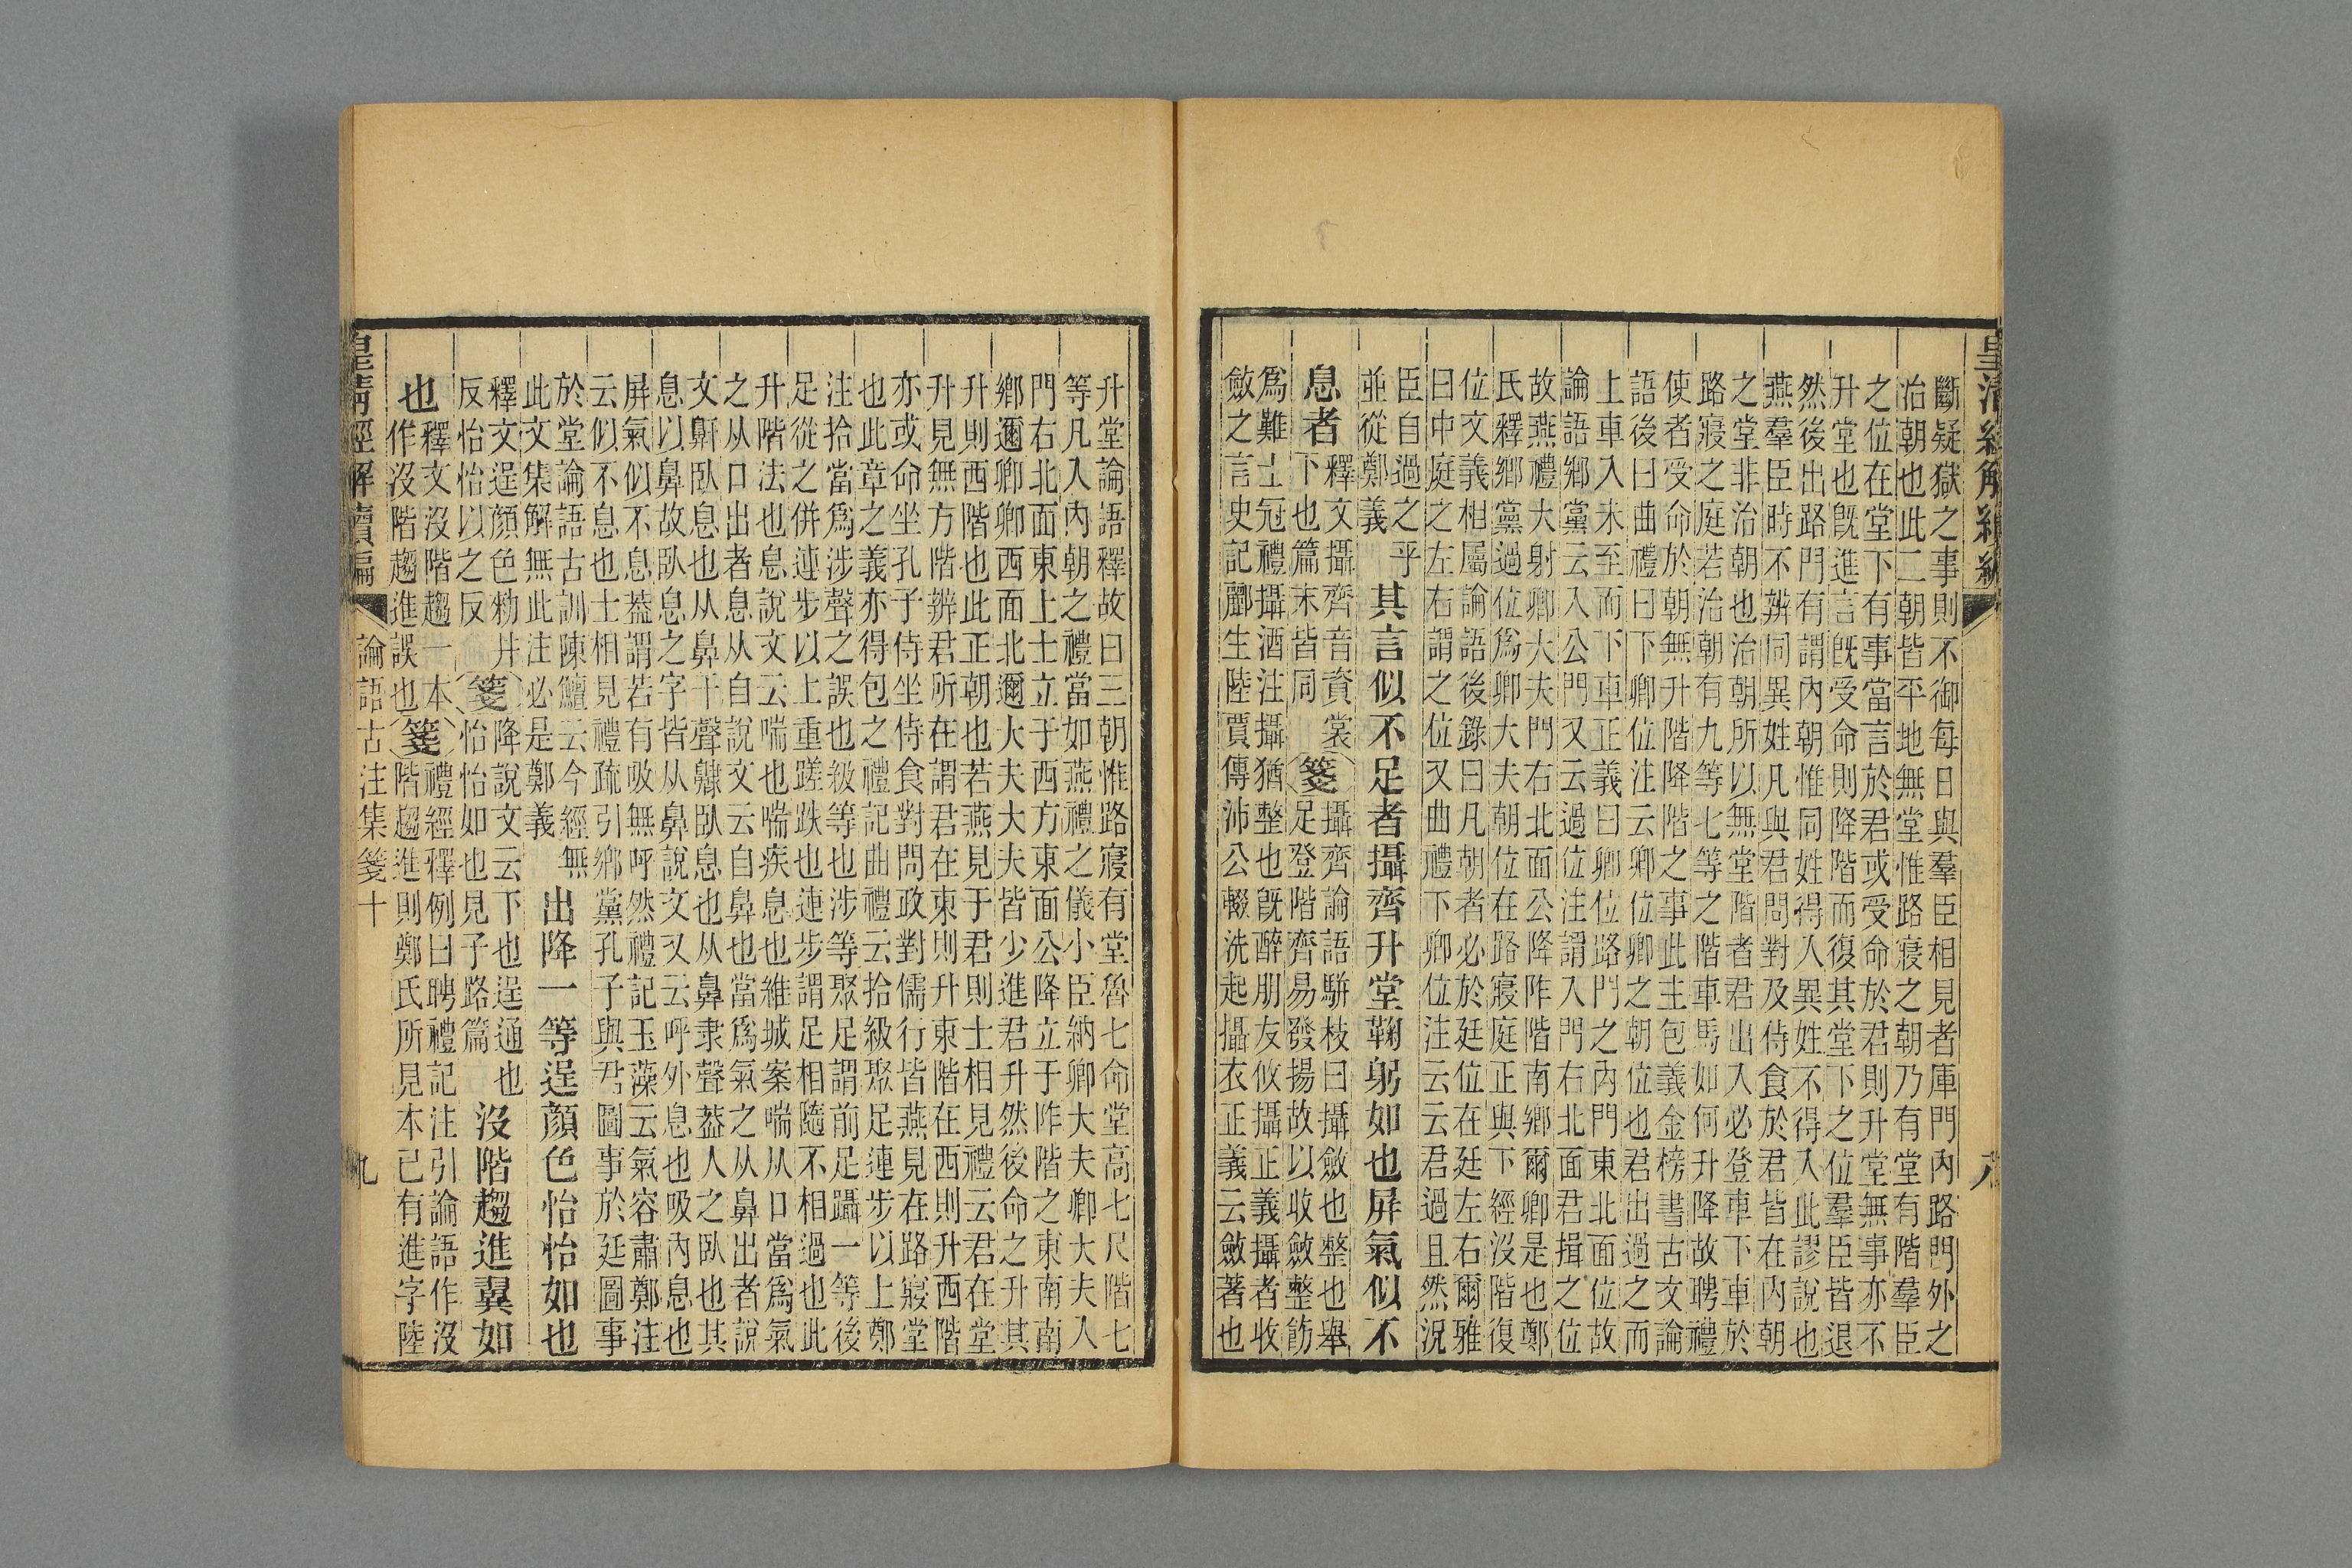 皇清經解續編
斷疑獄之事則不御每日與羣臣相見者庫門內路門外之
治朝也此二朝皆平地無堂惟路寢之朝乃有堂有階羣臣
之位在堂下有事當言於君或受命於君則升堂無事亦不
升堂也旣進言旣受命則降階而復其堂下之位羣臣皆退
然後出路門有謂內朝惟同姓得入異姓不得入此謬說也
燕羣臣時不辨同異姓凡與君問對及侍食於君皆在內朝
之堂非治朝也治朝所以無堂階者君出入必登車下車於
路寢之庭若治朝有九等七等之階車馬如何升降故聘禮
使者受命於朝無升階降階之事此主包義金榜書古文論
語後曰曲禮曰下卿位注云卿位卿之朝位也君出過之而
上車入未至而下車正義曰卿位路門之內門東北面位故
論語鄉黨云入公門又云過位注謂入門右北面君揖之位
故燕禮大射卿大夫門右北面公降阼階南鄉爾卿是也鄭
氏釋鄉黨過位爲卿大夫朝位在路寢庭正與下經沒階復
位文義相屬論語後錄曰凡朝者必於廷位在廷左右爾雅
曰中庭之左右謂之位又曲禮下卿位注云云君過且然況
臣自過之乎
並從鄭義
其言似不足者攝齊升堂鞠躬如也屏氣似不
息者
釋文攝齊音資裳
下也篇末皆同
箋
攝齊論語駢枝曰攝斂也整也舉
足登階齊易發揚故以收斂整飭
爲難士冠禮攝酒注攝猶整也旣醉朋友攸攝正義攝者收
斂之言史記酈生陸賈傳沛公輟洗起攝衣正義云斂著也
升堂論語釋故曰三朝惟路寢有堂魯七命堂高七尺階七
等凡入內朝之禮當如燕禮之儀小臣納卿大夫卿大夫入
門右北面東上士立于西方東面公降立于阼階之東南南
鄉邇卿卿西面北邇大夫大夫皆少進君升然後命之升其
升則西階也此正朝也若燕見于君則士相見禮云君在堂
升見無方階辨君所在謂君在東則升東階在西則升西階
亦或命坐孔子侍坐侍食對問政對儒行皆燕見在路寢堂
也此章之義亦得包之禮記曲禮云拾級聚足連步以上鄭
注拾當爲涉聲之誤也級等也涉等聚足謂前足躡一等後
足從之併連步以上重蹉跌也連步謂足相隨不相過也此
升階法也息說文云喘也喘疾息也維城案喘从口當爲氣
之从口出者息从自說文云自鼻也當爲氣之从鼻出者說
文鼾臥息也从鼻干聲齂臥息也从鼻隶聲葢人之臥也其
息以鼻故臥息之字皆从鼻說文又云呼外息也吸內息也
屏氣似不息葢謂若有吸無呼然禮記玉藻云氣容肅鄭注
云似不息也士相見禮疏引鄉黨孔子與君圖事於廷圖事
於堂論語古訓陳鱣云今經無
此文集解無此注必是鄭義
出降一等逞顏色怡怡如也
釋文逞顏色勑井
反怡怡以之反
箋
降說文云下也逞通也
怡怡如也見子路篇
沒階趨進翼如
也
釋文沒階趨一本
作沒階趨進誤也
箋
禮經釋例曰聘禮記注引論語作沒
階趨進則鄭氏所見本已有進字陸
皇清經解續編
論語古注集箋十
九